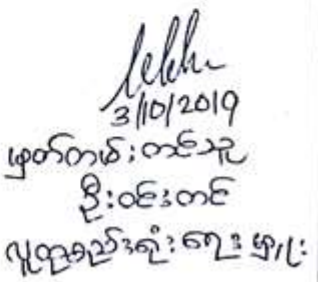 3/10/2019
ဖတ်ကြားတင်သူ
ဦးဝင်းတင်
လူထုစည်းရုံးရေးမှူး